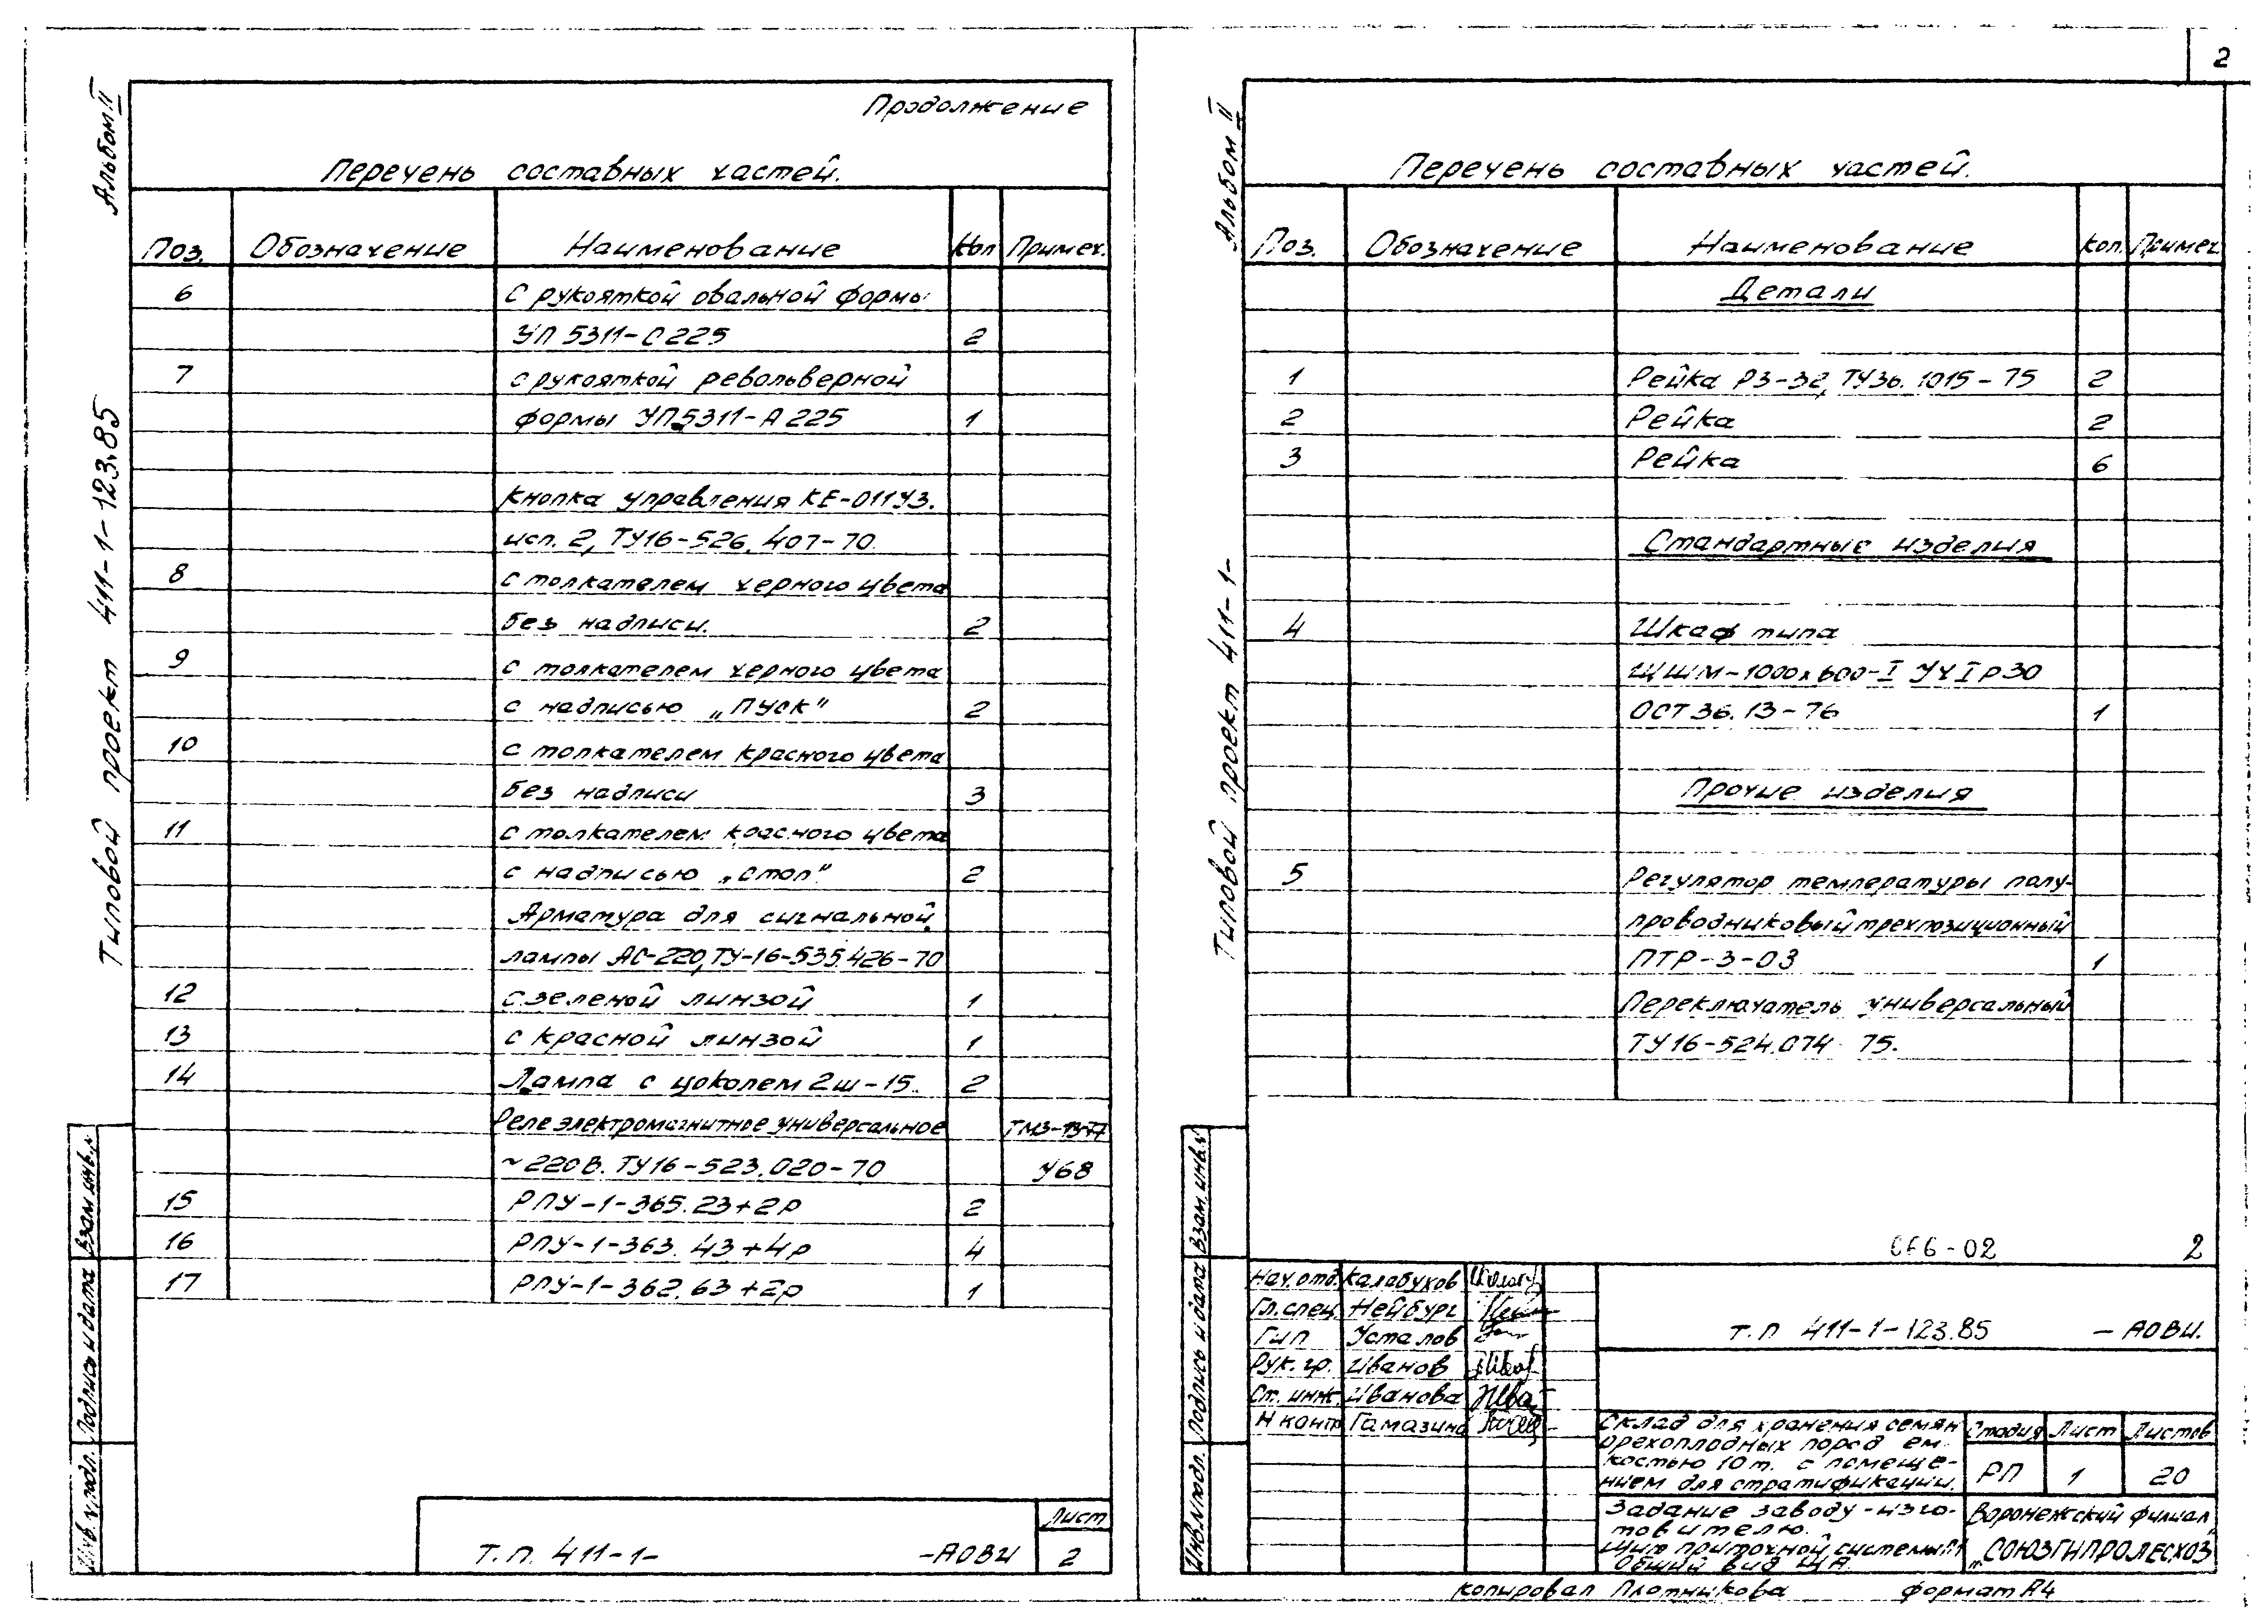 2
Альбом II
Типовой проект 411-1-123.85
Продолжение
Перечень составных частей.
Поз. Обозначение Наименование Кол Примеч.
6 С рукояткой овальной формы
УП 5311-С225 2
7 с рукояткой револьверной
формы УП5311-А225 1
Кнопка управления КЕ-011У3.
исп. 2, ТУ16-526.407-70.
8 с толкателем черного цвета
без надписи. 2
9 с толкателем черного цвета
с надписью „Пуск" 2
10 с толкателем красного цвета
без надписи 3
11 с толкателем красного цвета
с надписью „Стоп" 2
Арматура для сигнальной
лампы АС-220, ТУ-16-535.426-70
12 с зеленой линзой 1
13 с красной линзой 1
14 Лампа с цоколем 2ш-15. 2
Реле электромагнитное универсальное ТМ3-13-77
~220В. ТУ16-523.020-70 У68
15 РПУ-1-365.23+2р 2
16 РПУ-1-363.43+4р 4
17 РПУ-1-362.63+2р 1
Взам инв.№
Подпись и дата
Инв.№ подл.
Т.П. 411-1- -АОВИ
Лист
2
Альбом II
Типовой проект 411-1-
Перечень составных частей.
Поз. Обозначение Наименование Кол. Примеч
Детали
1 Рейка Р3-32, ТУ36.1015-75 2
2 Рейка 2
3 Рейка 6
Стандартные изделия
4 Шкаф типа
ЩШМ-1000х600-I УЧ IР30
ОСТ 36.13-76 1
Прочие изделия
5 Регулятор температуры полу-
проводниковый трехпозиционный
ПТР-3-03 1
Переключатель универсальный
ТУ16-524.074 75.
Взам. инв.№
Подпись и дата
Инв.№ подл.
-02 2
Нач. отд. Калабухов
Гл. спец. Нейбург
Гип Усталов
Рук. гр. Иванов
Ст. инж. Иванова
Н контр Гамазина
Т.П 411-1-123.85 -АОВИ.
Склад для хранения семян
орехоплодных пород ем-
костью 10т. с помеще-
нием для стратификации.
Стадия Лист Листов
РП 1 20
Задание заводу-изго-
товителю.
Щит приточной системы П1
Общий вид ЩА.
Воронежский филиал
„СОЮЗГИПРОЛЕСХОЗ"
Копировал Плотникова Формат А4